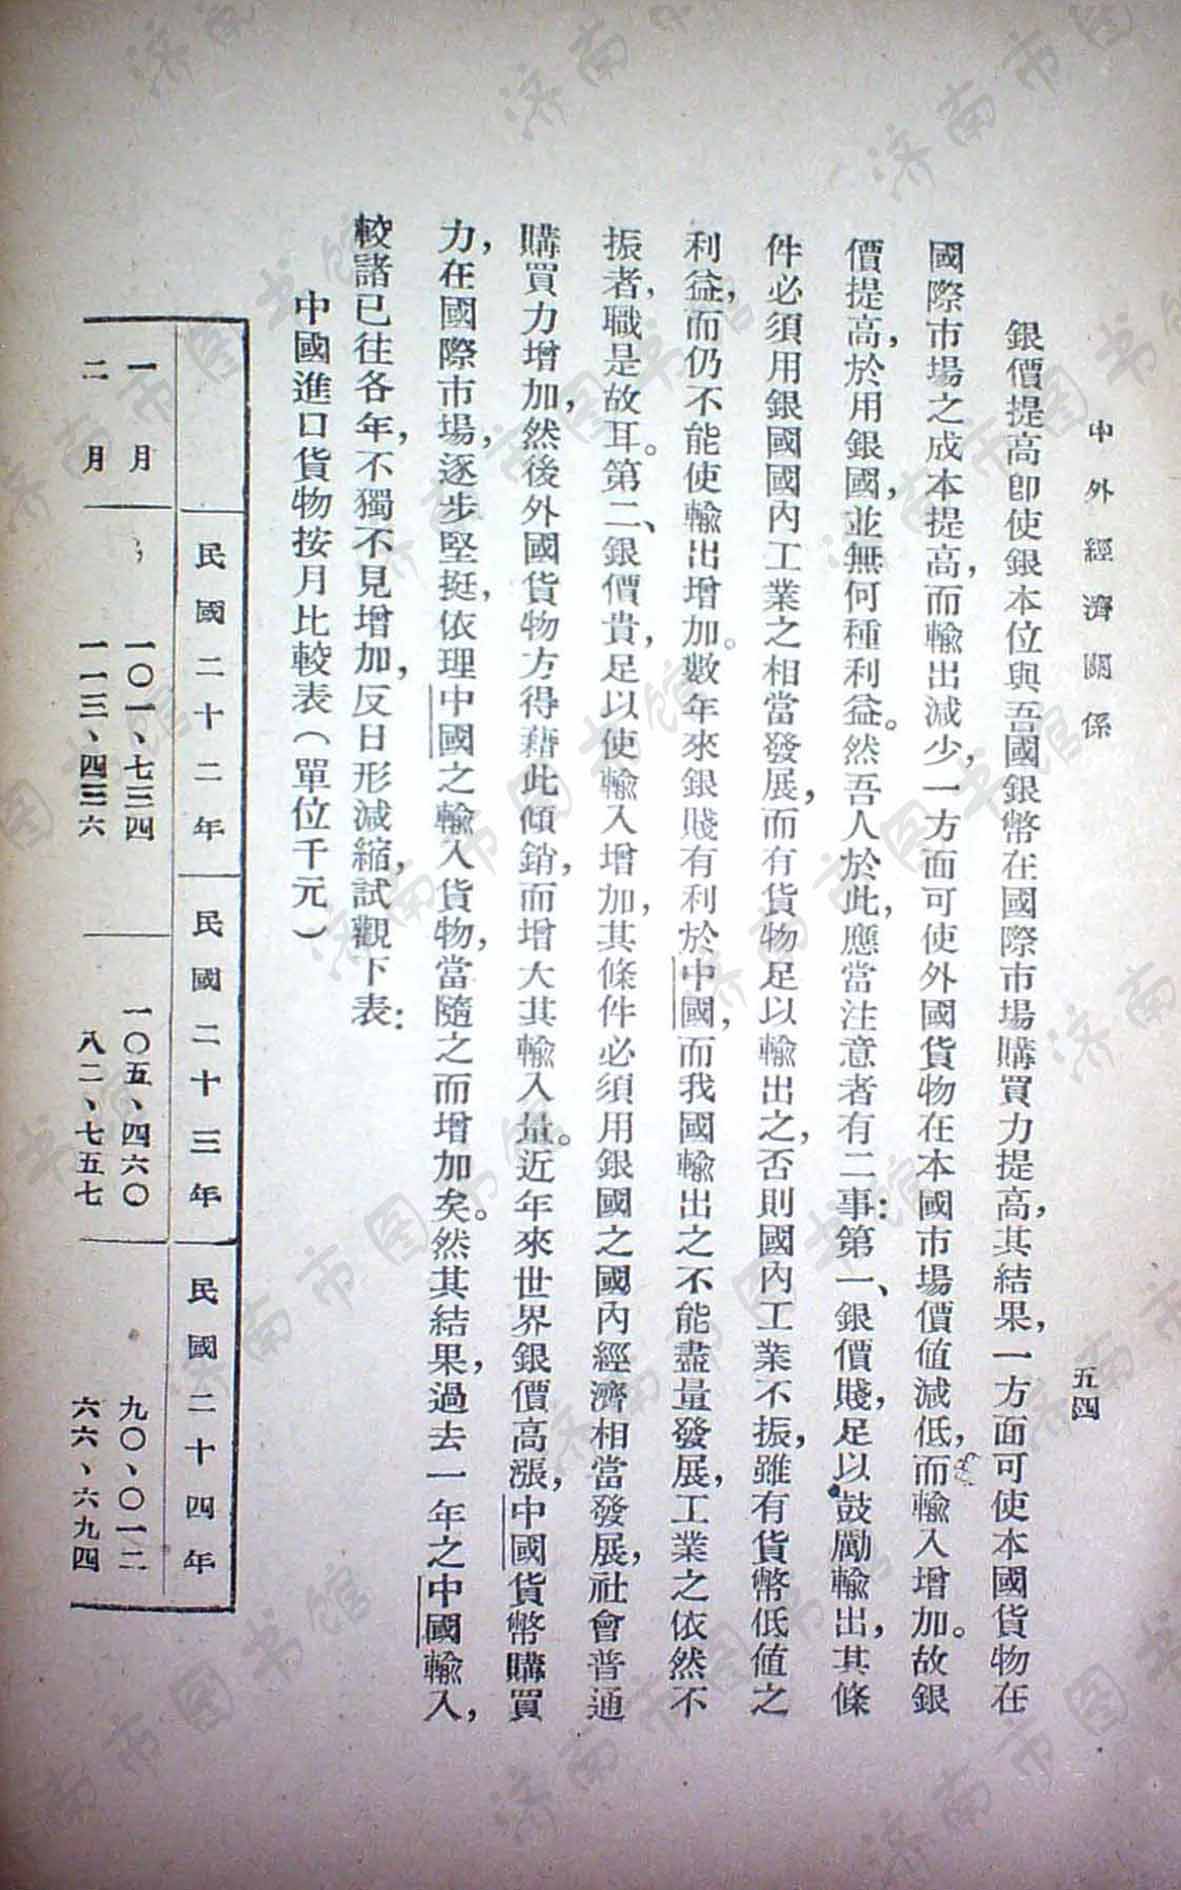 中外經濟關係
五四
銀價提高卽使銀本位與吾國銀幣在國際市場購買力提高，其結果，一方面可使本國貨物在
國際市場之成本提高，而輸出減少，一方面可使外國貨物在本國市場價值減低，而輸入增加。故銀
價提高，於用銀國，並無何種利益。然吾人於此，應當注意者有二事：第一、銀價賤，足以鼓勵輸出，其條
件必須用銀國國內工業之相當發展，而有貨物足以輸出之，否則國內工業不振，雖有貨幣低值之
利益，而仍不能使輸出增加。數年來銀賤有利於中國，而我國輸出之不能盡量發展，工業之依然不
振者，職是故耳。第二、銀價貴，足以使輸入增加，其條件必須用銀國之國內經濟相當發展，社會普通
購買力增加，然後外國貨物方得藉此傾銷，而增大其輸入量。近年來世界銀價高漲，中國貨幣購買
力，在國際市場，逐步堅挺，依理中國之輸入貨物，當隨之而增加矣。然其結果，過去一年之中國輸入，
較諸已往各年，不獨不見增加，反日形減縮，試觀下表：
中國進口貨物按月比較表（單位千元）
民國二十二年 民國二十三年 民國二十四年
一月 一〇一、七三四 一〇五、四六〇 九〇、〇一二
二月 一一三、四三六 八二、七五七 六六、六九四
济南市图书馆